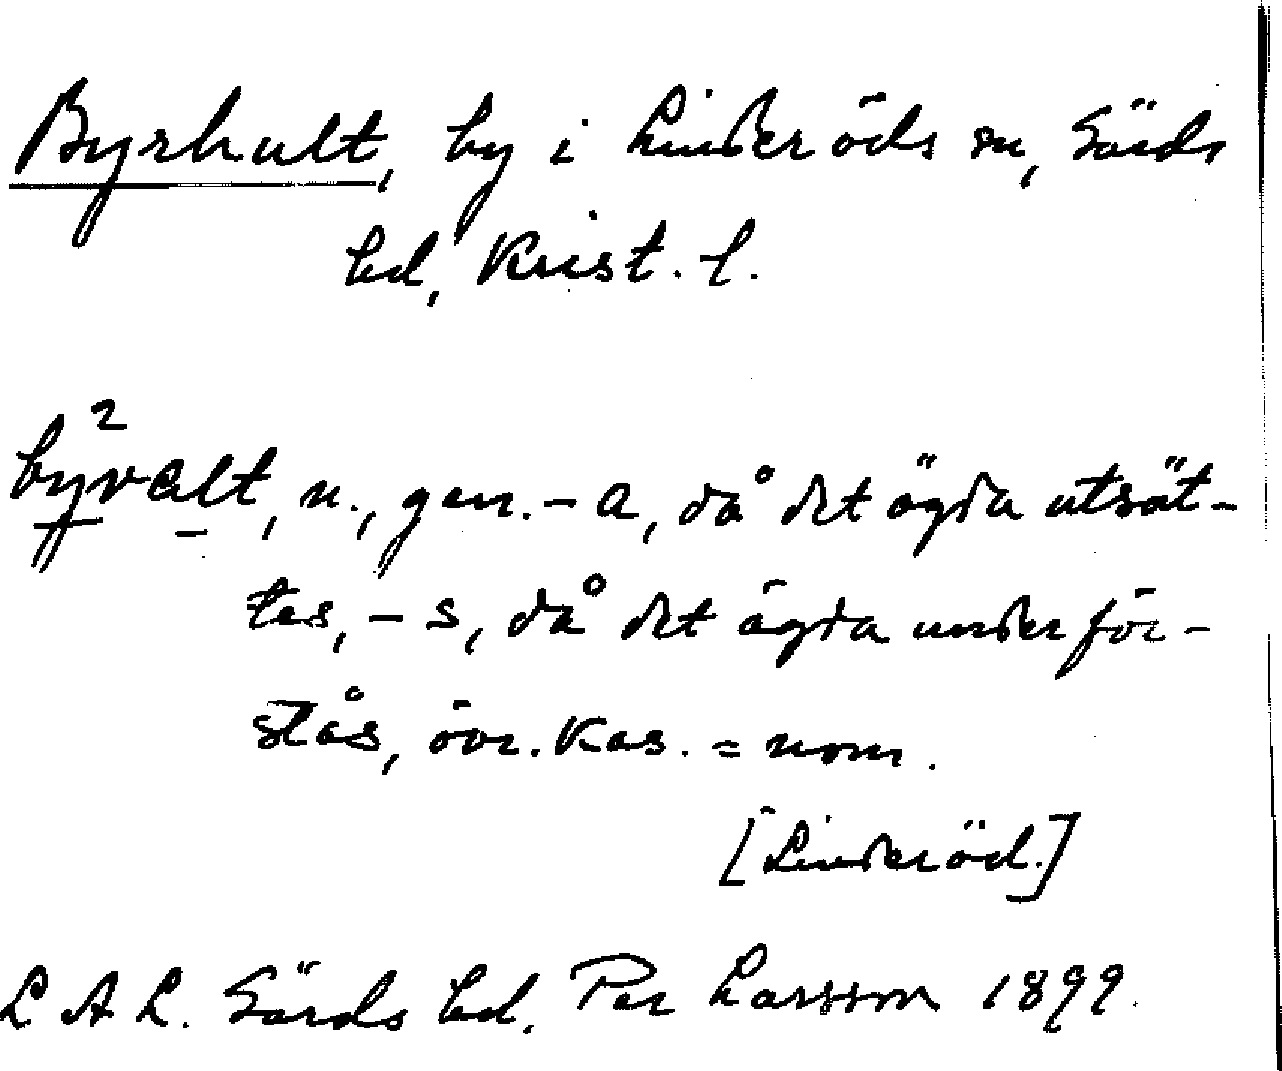 Byrhult, by i Linderöds sn, Gärds
hd, Krist. l.
by²valt, n., gen. -a, då det ägda utsät-
tes, -s, då det ägda underför-
stås, övr. kas. = nom.
[Linderöd.]
L A L. Gärds hd. Per Larsson 1899.